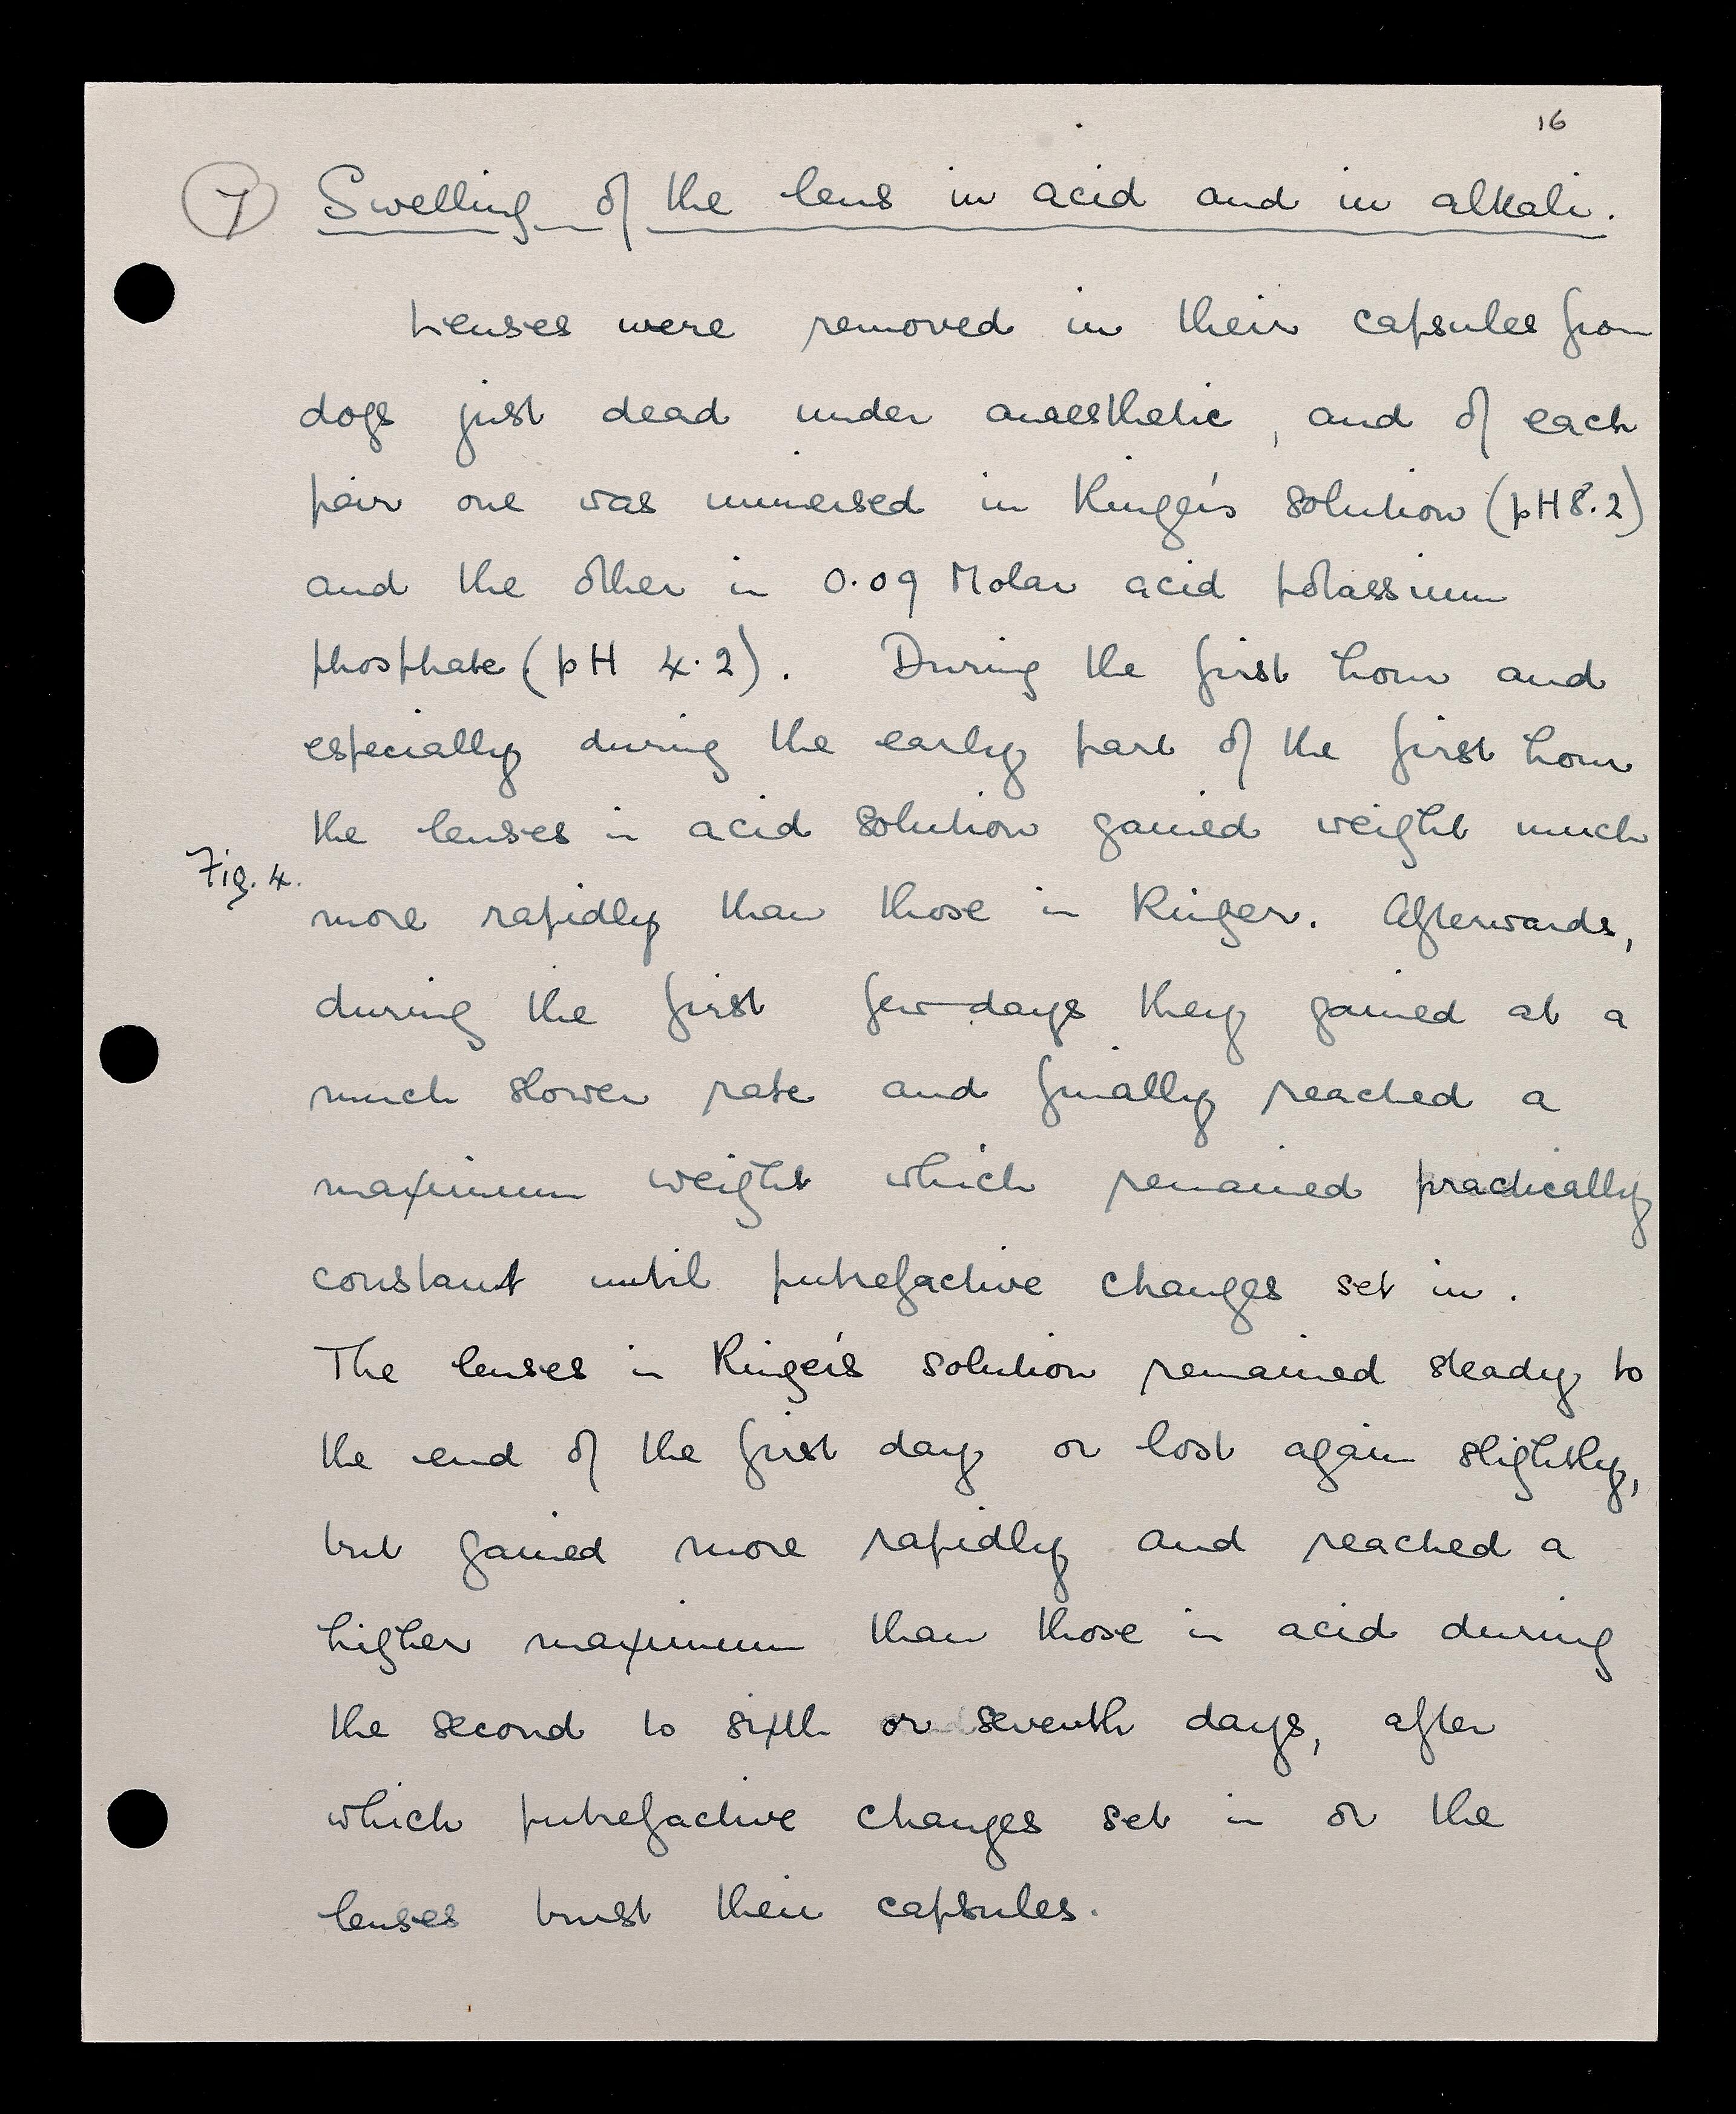 16
7 Swelling of the lens in acid and in alkali.
Lenses were removed in their capsules from
dogs just dead under anaesthetic, and of each
pair one was immersed in Ringer's solution (pH 8.2)
and the other in 0.09 Molar acid potassium
phosphate (pH 4.2). During the first hour and
especially during the early part of the first hour
the lenses in acid solution gained weight much
Fig. 4.
more rapidly than those in Ringer. Afterwards,
during the first few days they gained at a
much slower rate and finally reached a
maximum weight which remained practically
constant until putrefactive changes set in.
The lenses in Ringer's solution remained steady to
the end of the first day or lost again slightly,
but gained more rapidly and reached a
higher maximum than those in acid during
the second to sixth or seventh days, after
which putrefactive changes set in or the
lenses burst their capsules.